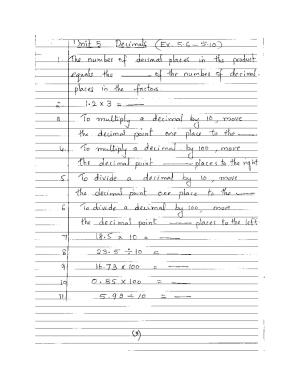 Unit 5 Decimals (Ex. 5.6 – 5.10)
1 The number of decimal places in the product
equals the ____ of the number of decimal
places in the factors
2 1.2 x 3 = ___
3 To multiply a decimal by 10, move
the decimal point one place to the ___
4. To multiply a decimal by 100, move
the decimal point ____ places to the right
5. To divide a decimal by 10, move
the decimal point one place to the ____
6 To divide a decimal by 100, move
the decimal point ____ places to the left
7 18.5 x 10 = ___
8 23.5 ÷ 10 = ___
9 16.73 x 100 = ___
10 0.85 x 100 = ___
11 5.99 ÷ 10 = ___